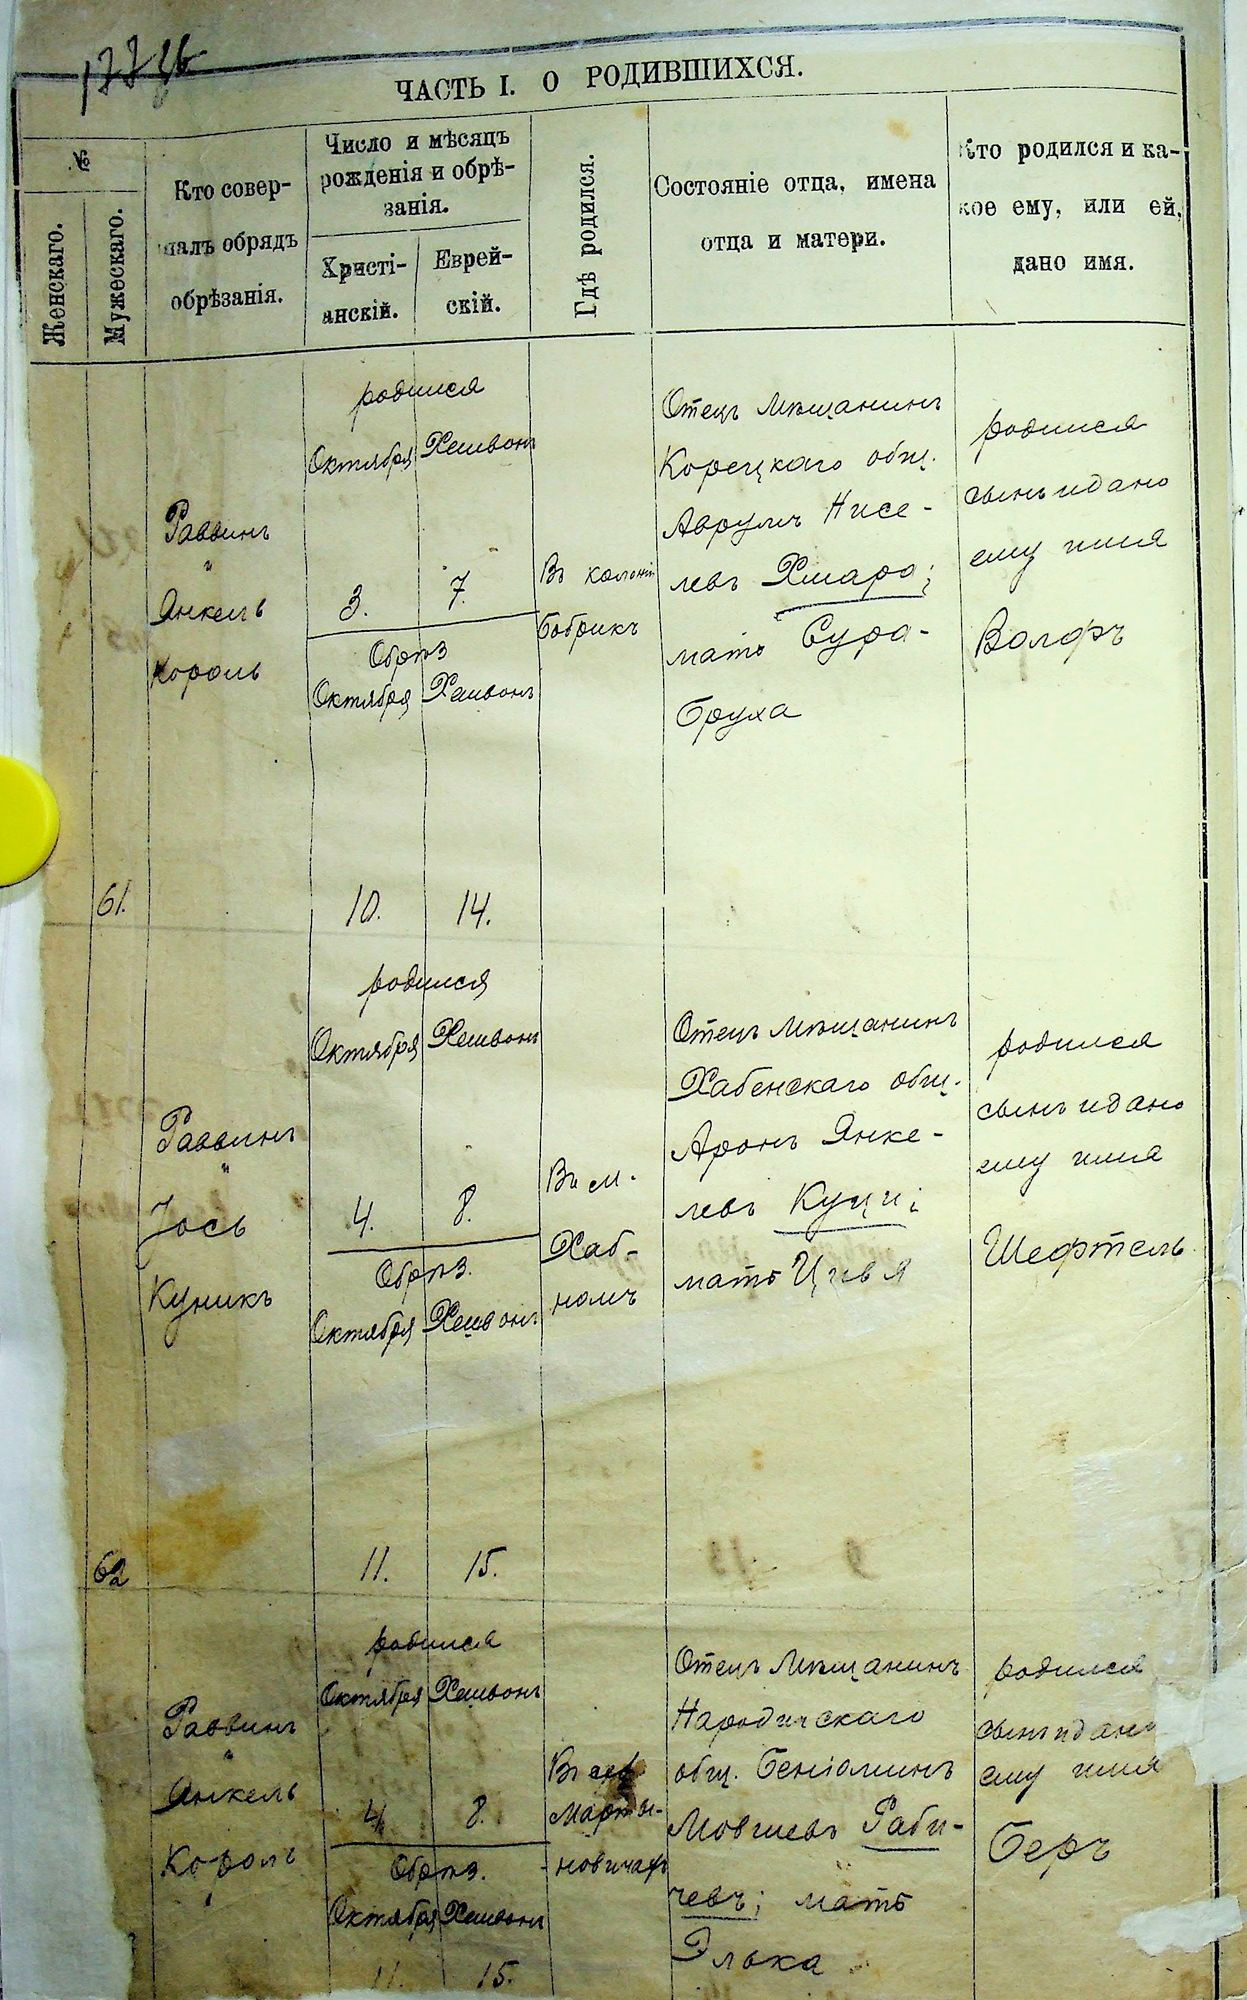 ЧАСТЬ I. О РОДИВШИХСЯ.
№
Женскаго.
Мужескаго.
Кто совер-
шалъ обрядъ
обрѣзанія.
Число и мѣсяцъ
рожденія и обрѣ-
занія.
Христі-
анскій.
Еврей-
скій.
Гдѣ родился.
Состояніе отца, имена
отца и матери.
Кто родился и ка-
кое ему, или ей,
дано имя.
61.
Раввинъ
"
Янкель
Король
родился
Октября Хешвонъ
3. 7.
Обрѣз
Октября Хешвонъ
10. 14.
Въ колоніи
Бобрикъ
Отецъ Мѣщанинъ
Корецкаго общ.
Аврумъ Нисе-
левъ Хмара;
мать Сура-
Бруха
родился
сынъ и дано
ему имя
Волфъ
62
Раввинъ
"
Іось
Куникъ
родился
Октября Хешвонъ
4. 8.
Обрѣз.
Октября Хешвонъ
11. 15.
Въ м.
Хаб-
номъ
Отецъ Мѣщанинъ
Хабенскаго общ.
Аронъ Янке-
левъ Куци;
мать Цивя
родился
сынъ и дано
ему имя
Шефтель
Раввинъ
"
Янкель
Король
родился
Октября Хешвонъ
4. 8.
Обрѣз.
Октября Хешвонъ
11. 15.
Марты-
новичахъ
Отецъ Мѣщанинъ
Народичскаго
общ. Беніоминъ
Мовшевъ Раби-
чевъ; мать
Элька
родился
сынъ и дано
ему имя
Беръ